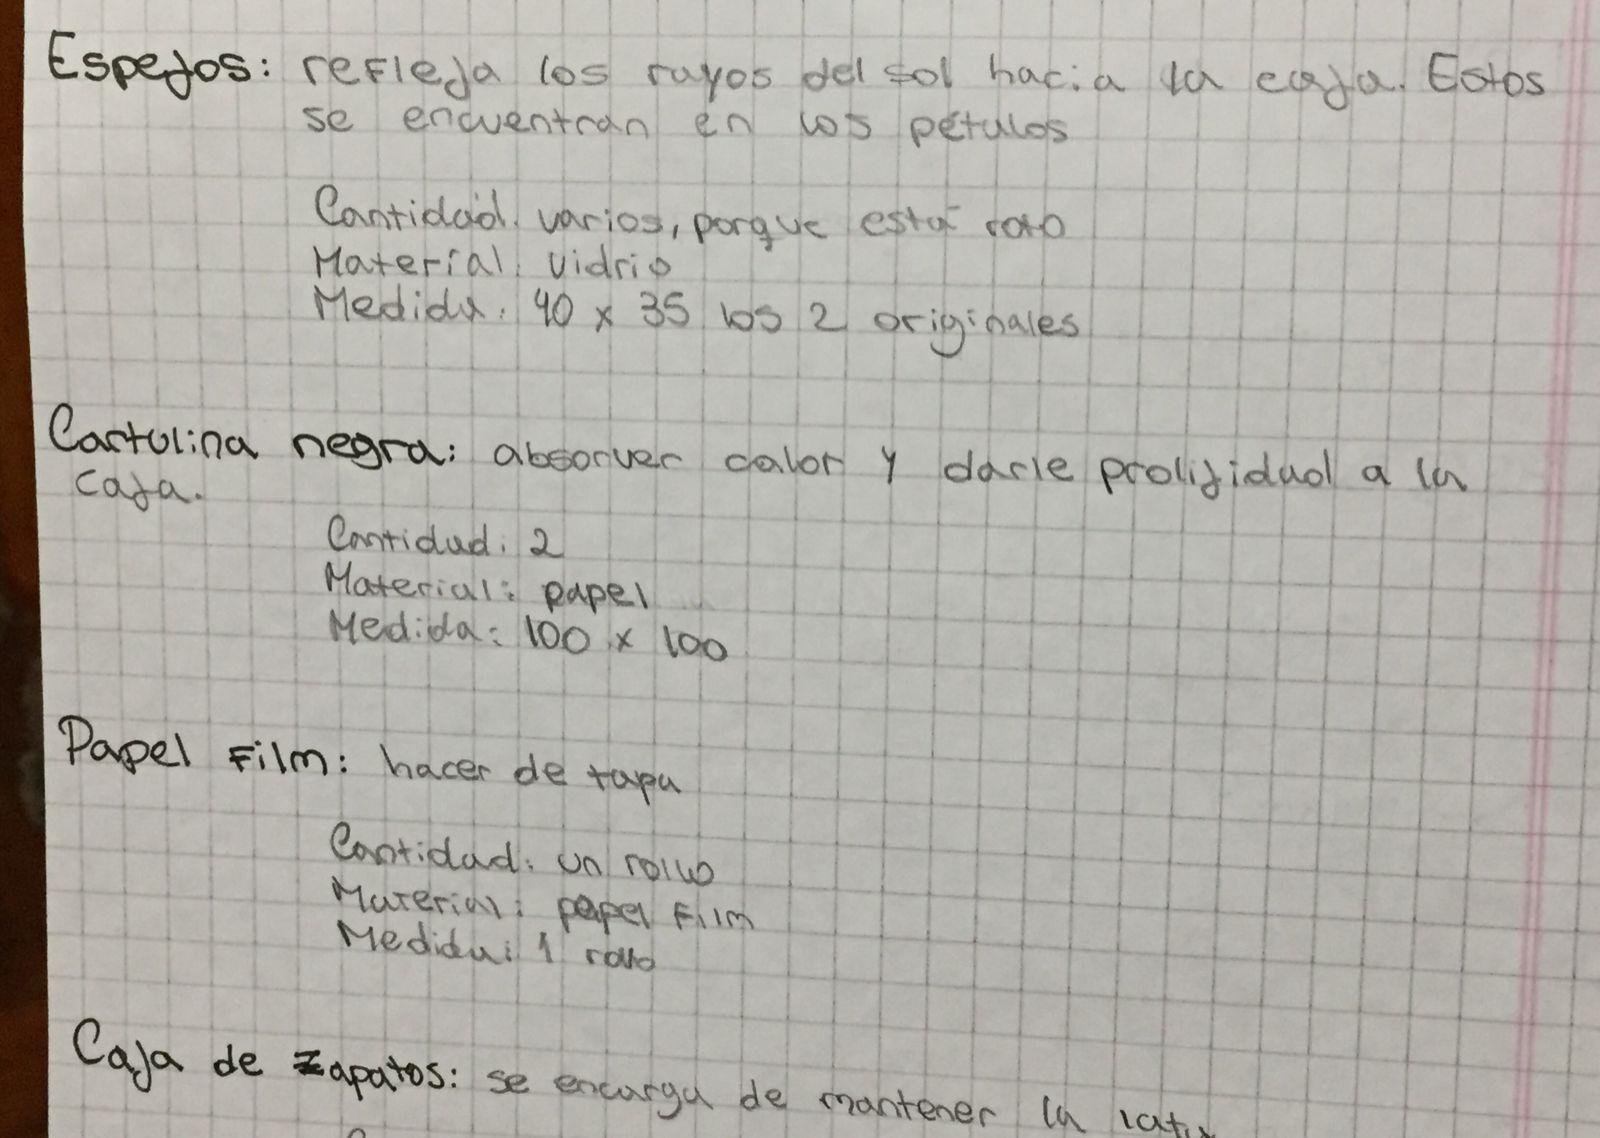 Espejos: refleja los rayos del sol hacia la caja. Estos
se encuentran en los pétalos
Cantidad: varios, porque está roto
Material: vidrio
Medida: 40 x 35 los 2 originales
Cartulina negra: absorver calor y darle prolijidad a la
caja.
Cantidad: 2
Material: papel
Medida: 100 x 100
Papel Film: hacer de tapa
Cantidad: un rollo
Material: papel Film
Medida: 1 rollo
Caja de zapatos: se encarga de mantener la lata